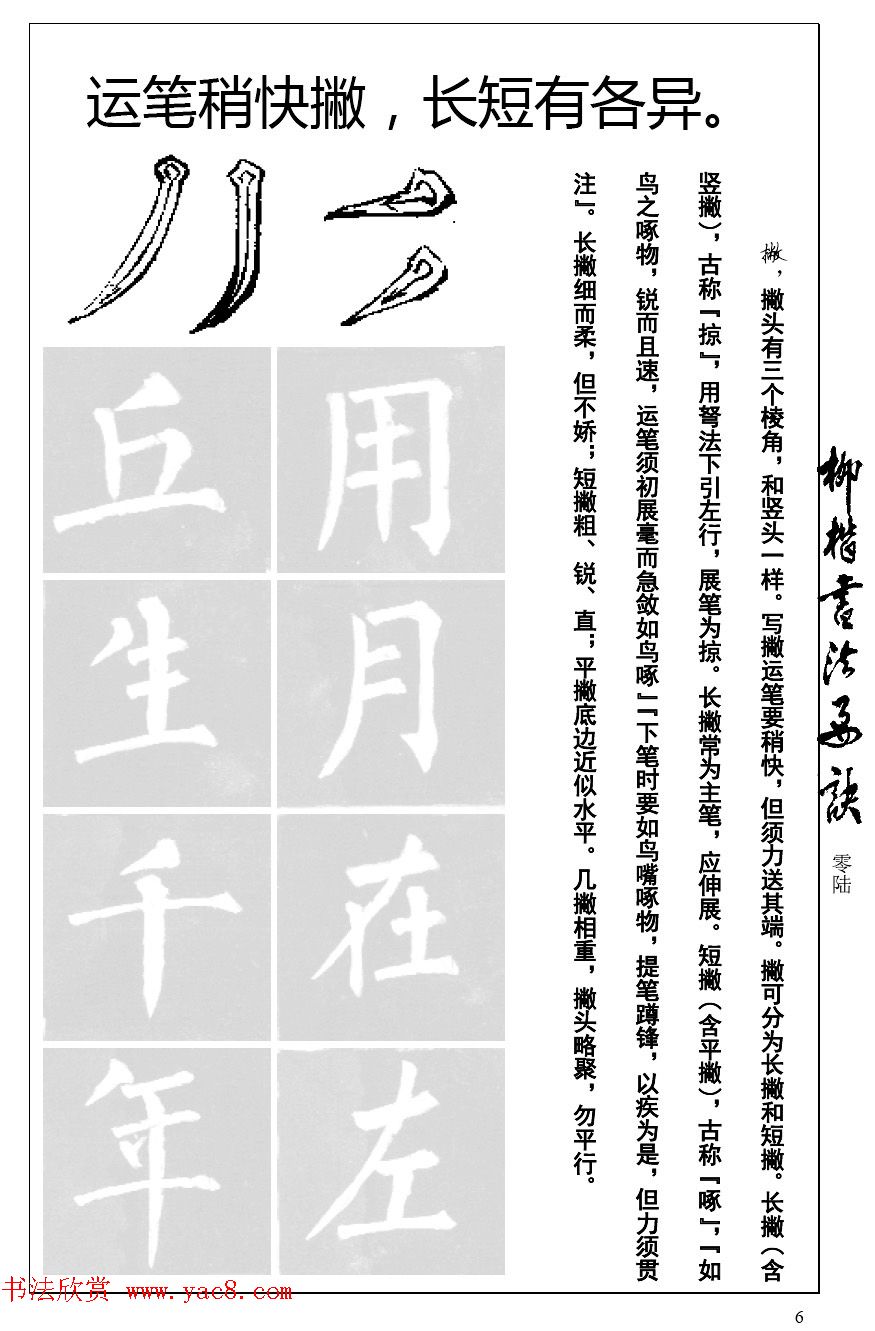 运笔稍快撇，长短有各异。
撇，撇头有三个棱角，和竖头一样。写撇运笔要稍快，但须力送其端。撇可分为长撇和短撇。长撇（含
竖撇），古称『掠』，用弩法下引左行，展笔为掠。长撇常为主笔，应伸展。短撇（含平撇），古称『啄』，『如
鸟之啄物，锐而且速，运笔须初展毫而急敛如鸟啄』『下笔时要如鸟嘴啄物，提笔蹲锋，以疾为是，但力须贯
注』。长撇细而柔，但不娇；短撇粗、锐、直；平撇底边近似水平。几撇相重，撇头略聚，勿平行。
用
月
在
左
丘
生
千
年
柳楷书法要诀
零陆
书法欣赏 www.yac8.com
6